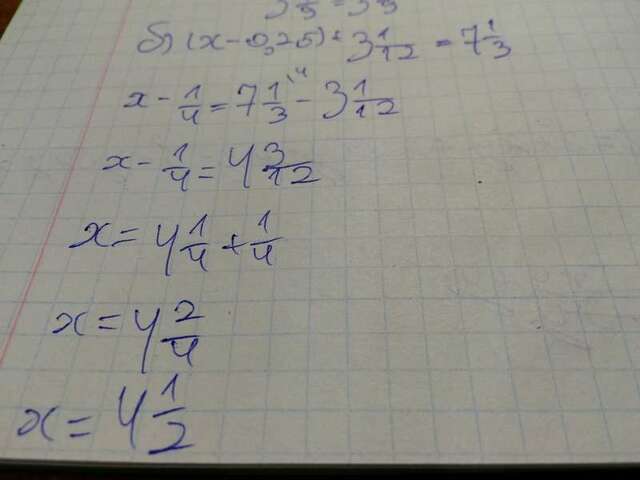 б) (x - 0,25) + 3 1/12 = 7 1/3
x - 1/4 = 7 1/3 - 3 1/12
x - 1/4 = 4 3/12
x = 4 1/4 + 1/4
x = 4 2/4
x = 4 1/2